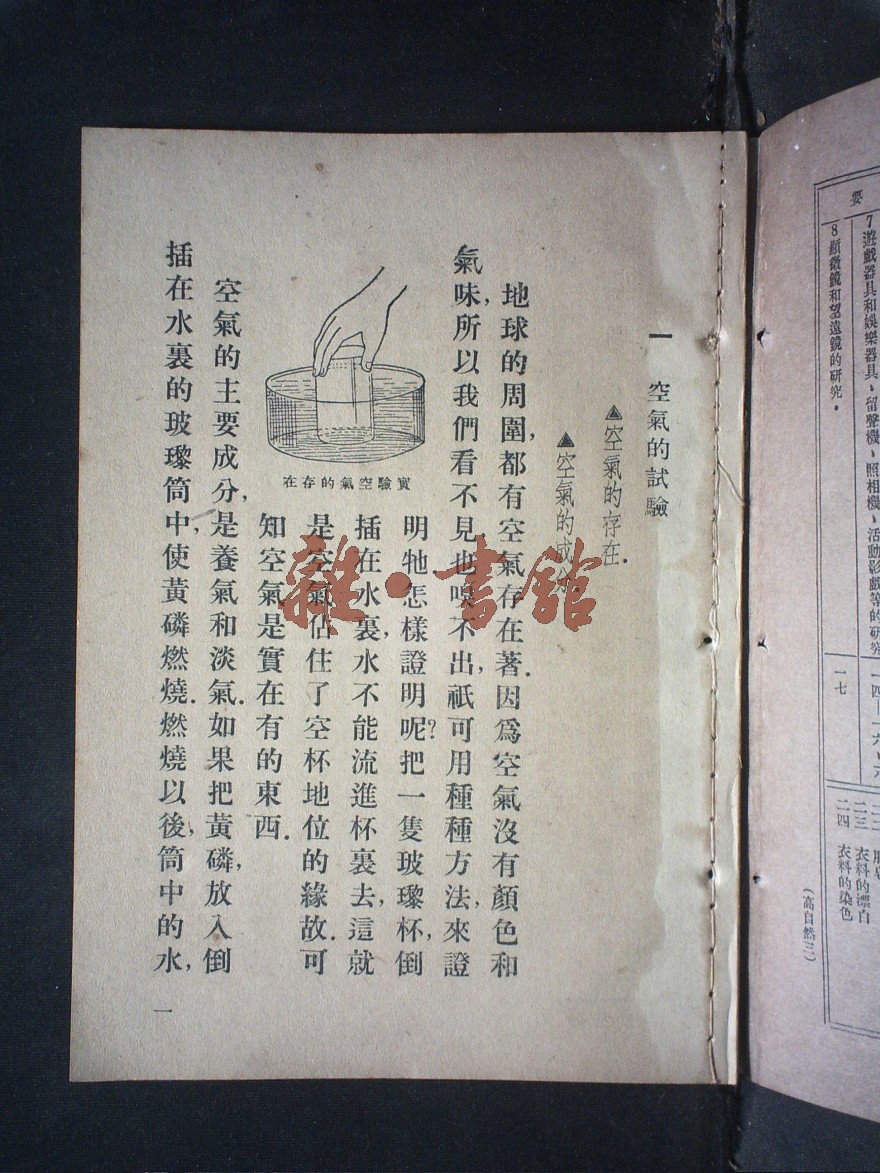 一 空氣的試驗
▲空氣的存在.
▲空氣的成分.
地球的周圍,都有空氣存在著.因爲空氣沒有顏色和
氣味,所以我們看不見也嗅不出,祇可用種種方法,來證
明牠怎樣證明呢?把一隻玻瓈杯,倒
插在水裏,水不能流進杯裏去,這就
是空氣佔住了空杯地位的緣故.可
知空氣是實在有的東西.
在存的氣空驗實
空氣的主要成分,是養氣和淡氣.如果把黃磷,放入倒
插在水裏的玻瓈筒中,使黃磷燃燒.燃燒以後,筒中的水,
一
雜·書館
要
7遊戲器具和娛樂器具、留聲機、照相機、活動影戲等的研究
8顯微鏡和望遠鏡的研究。
一七
二三 衣料的漂白
二四 衣料的染色
(高自然三)